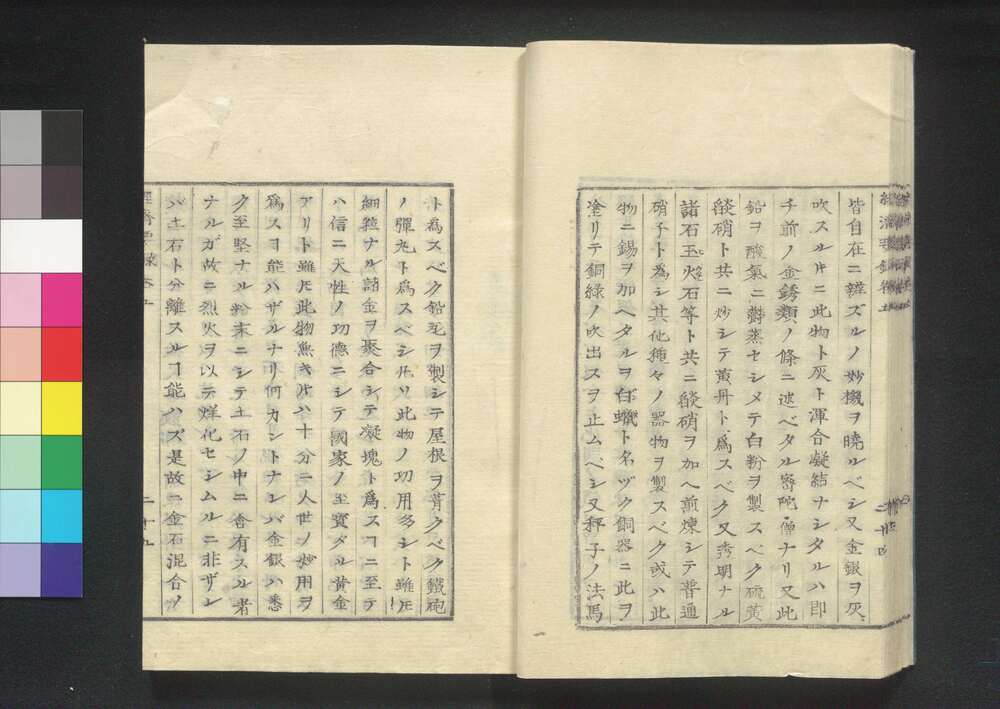 皆自在ニ辨ズルノ妙機ヲ曉ルベシ又金銀ヲ灰
吹スルキニ此物ト灰ト渾合凝結ナシタルハ即
チ前ノ金銹類ノ條ニ述ベタル密陀僧ナリ又此
鉛ヲ酸氣ニ欝蒸セシメテ白粉ヲ製スベク硫黄
燄硝ト共ニ炒シテ黄丹ト為スベク又透明ナル
諸石玉火石等ト共ニ燄硝ヲ加ヘ煎煉シテ普通
硝子ト為シ其他種々ノ器物ヲ製スベク或ハ此
物ニ錫ヲ加ヘタルヲ白蠟ト名ヅク銅器ニ此ヲ
塗リテ銅緑ノ吹出スヲ止ムベシ又秤子ノ法馬
ト為スベク鉛瓦ヲ製シテ屋根ヲ葺クベク鐵砲
ノ彈丸ト為スベシ凡ソ此物ノ功用多シト雖モ
細粒ナル諸金ヲ聚合シテ凝塊ト為スヿニ至テ
ハ信ニ天性ノ功德ニシテ國家ノ至寳ダル黄金
アリト雖モ此物無キ片ハ十分ニ人世ノ妙用ヲ
為スヿ能ハザルナリ何カントナレバ金銀ハ悉
ク至堅ナル粉末ニシテ土石ノ中ニ含有スル者
ナルガ故ニ烈火ヲ以テ烊化セシムルニ非ザレ
バ土石ト分離スルヿ能ハズ是故ニ金石混合ノ
二十五